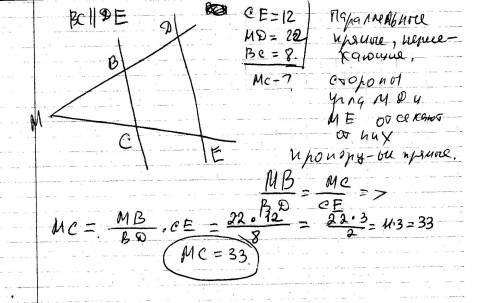 BC∥DE
CE = 12
MD = 22
BC = 8.
MC - ?
Параллельные
прямые, пересе-
кающие,
стороны
угла MD и
ME отсекают
от них
пропорц-ые прямые.
B
D
M
C
E
MB/BD = MC/CE =>
MC = MB/BD · CE = 22·12/8 = 22·3/2 = 11·3 = 33
MC = 33